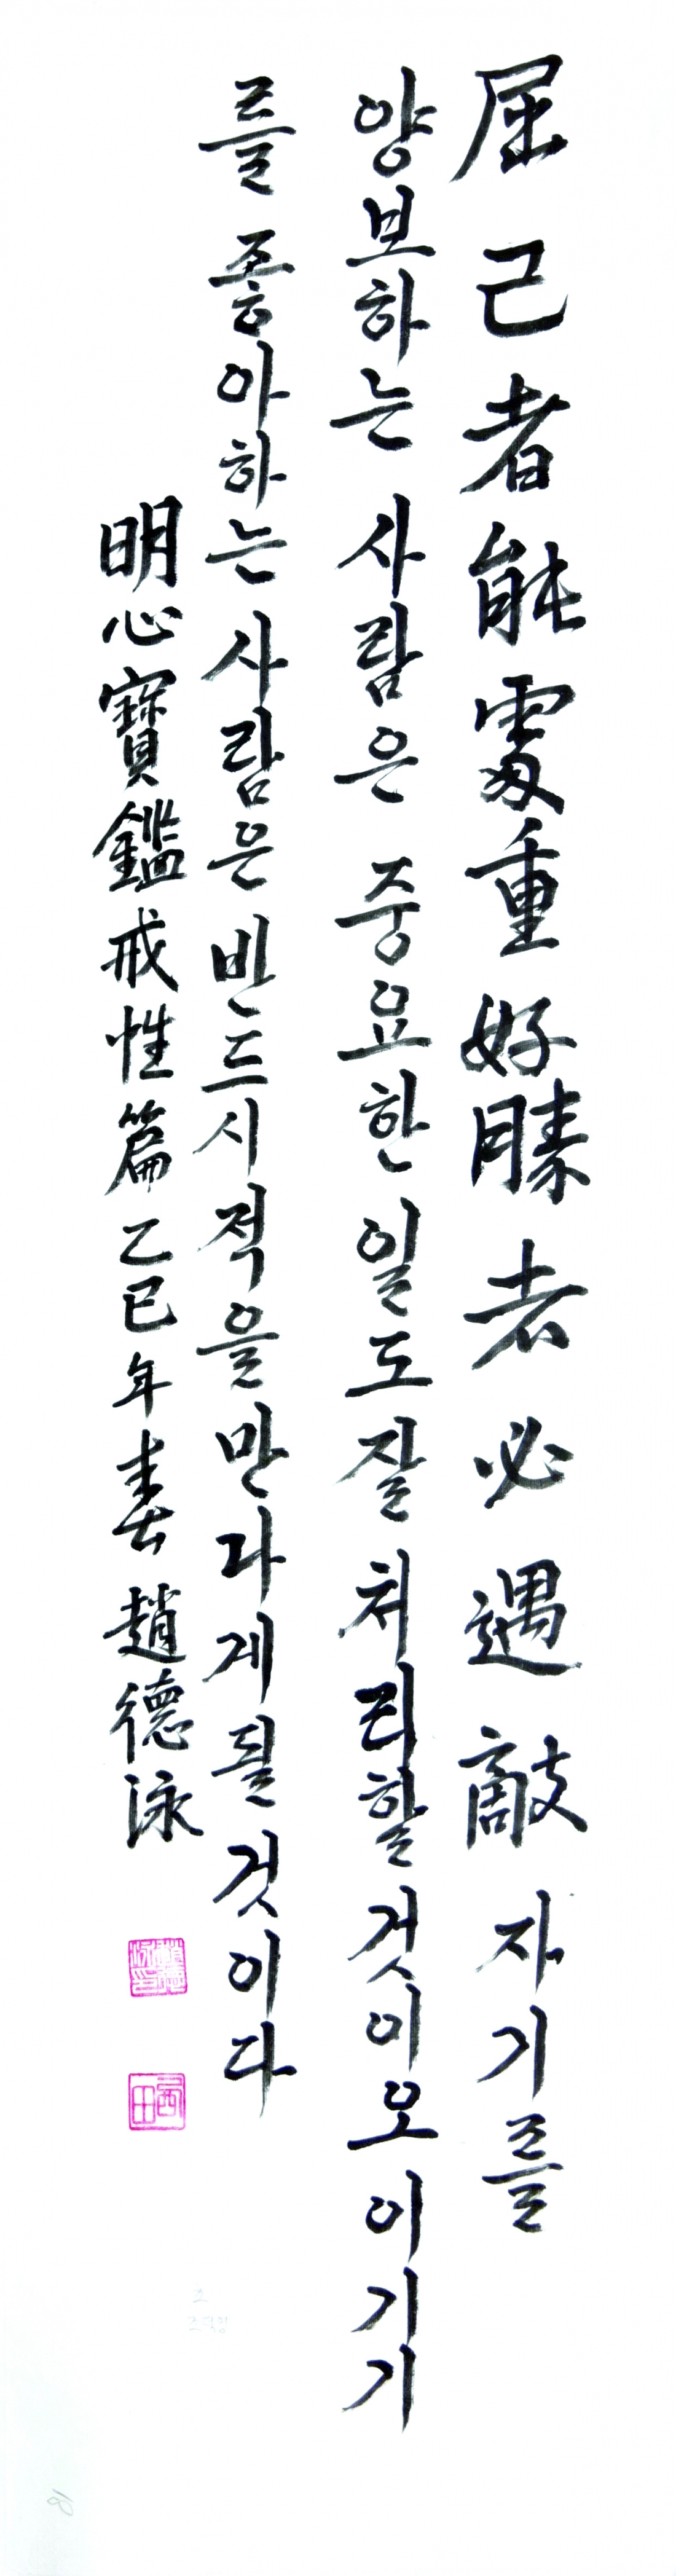 屈己者能處重好勝者必遇敵 자기를
양보하는 사람은 중요한 일도 잘 처리할 것이오 이기기
를 좋아하는 사람은 반드시 적을 만나게 될 것이다
明心寶鑑 戒性篇 乙巳年春 趙德泳